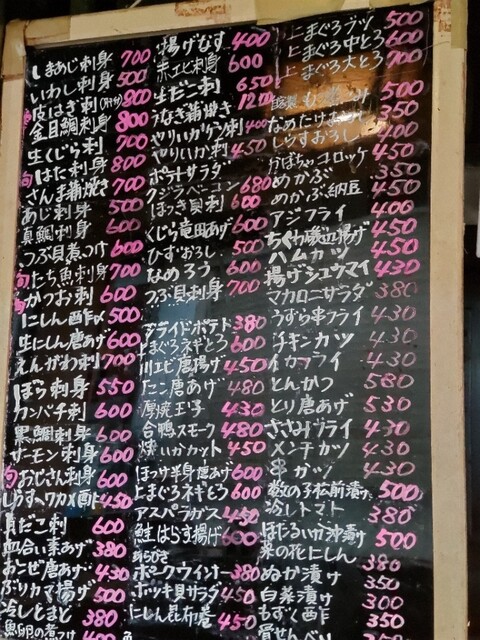 しまあじ刺身 700
いわし刺身 500
皮はぎ刺(肝付) 800
金目鯛刺身 800
生くじら刺 700
旬 はた刺身 800
さんま蒲焼き 700
あじ刺身 500
真鯛刺身 600
つぶ貝煮つけ 600
旬 たち魚刺身 700
旬 かつお刺 600
にしん酢〆 500
生にしん唐あげ 600
えんがわ刺 700
ぼら刺身 550
カンパチ刺 600
黒鯛刺身 600
サーモン刺身 600
旬 おじさん刺身 600
しらすへワカメ酢 450
真だこ刺 600
血合い素あげ 380
おこぜ唐あげ 430
ぶりカマ揚げ 500
冷しとまと 380
魚卵の煮つけ 400
揚げなす 400
赤エビ刺身 600
生だこ刺 650
うなぎ蒲焼き 1200
やりいかゲソ刺 400
やりいか刺 450
ポテトサラダ
クジラベーコン 680
ほっき貝刺 600
くじら竜田あげ 600
ひずおろし 500
なめろう 600
つぶ貝刺身 700
フライドポテト 380
上まぐろネギとろ 600
川エビ唐揚げ 450
たこ唐あげ 480
厚焼玉子 430
合鴨スモーク 480
焼いかカット 450
ほっけ半身唐あげ 600
上まぐろネギとろ 600
アスパラガス 450
鮭はらす揚げ 600
あらびき
ポークウインナー 380
ホッキ貝サラダ 450
にしん昆布巻 450
上まぐろブツ 500
上まぐろ中とろ 600
上まぐろ大とろ 700
500
なめたけおろし 350
しらすおろし 400
かぼちゃコロッケ 450
めかぶ 350
めかぶ納豆 450
アジフライ 400
ちくわ磯辺揚げ 450
ハムカツ 450
揚げシュウマイ 430
マカロニサラダ 380
うずら串フライ 430
チキンカツ 430
イカフライ 430
とんかつ 580
とり唐あげ 530
ささみフライ 430
メンチカツ 430
串カツ 430
数の子松前漬け 500
冷しトマト 380
ほたるいか沖漬け 500
菜の花にしん 380
ぬか漬け 350
白菜漬け 300
もずく酢 350